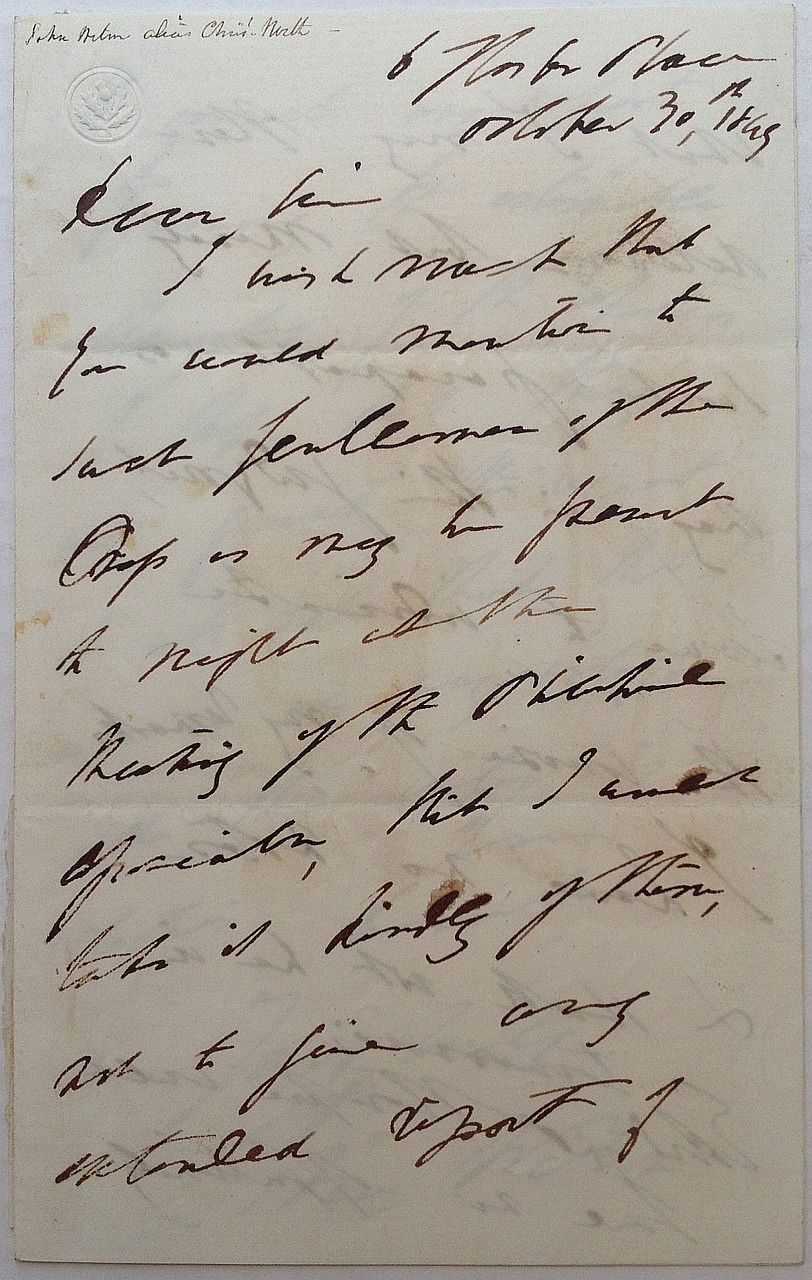 John Wilson alias Chris. North –
6 Gloster Place
October 30,th 184
Dear Sir
I wish much that
you would mention to
such gentlemen of the
Press as may be present
to night at the
Meeting of the
Association, that I would
take it kindly of them,
not to give any
extended report of